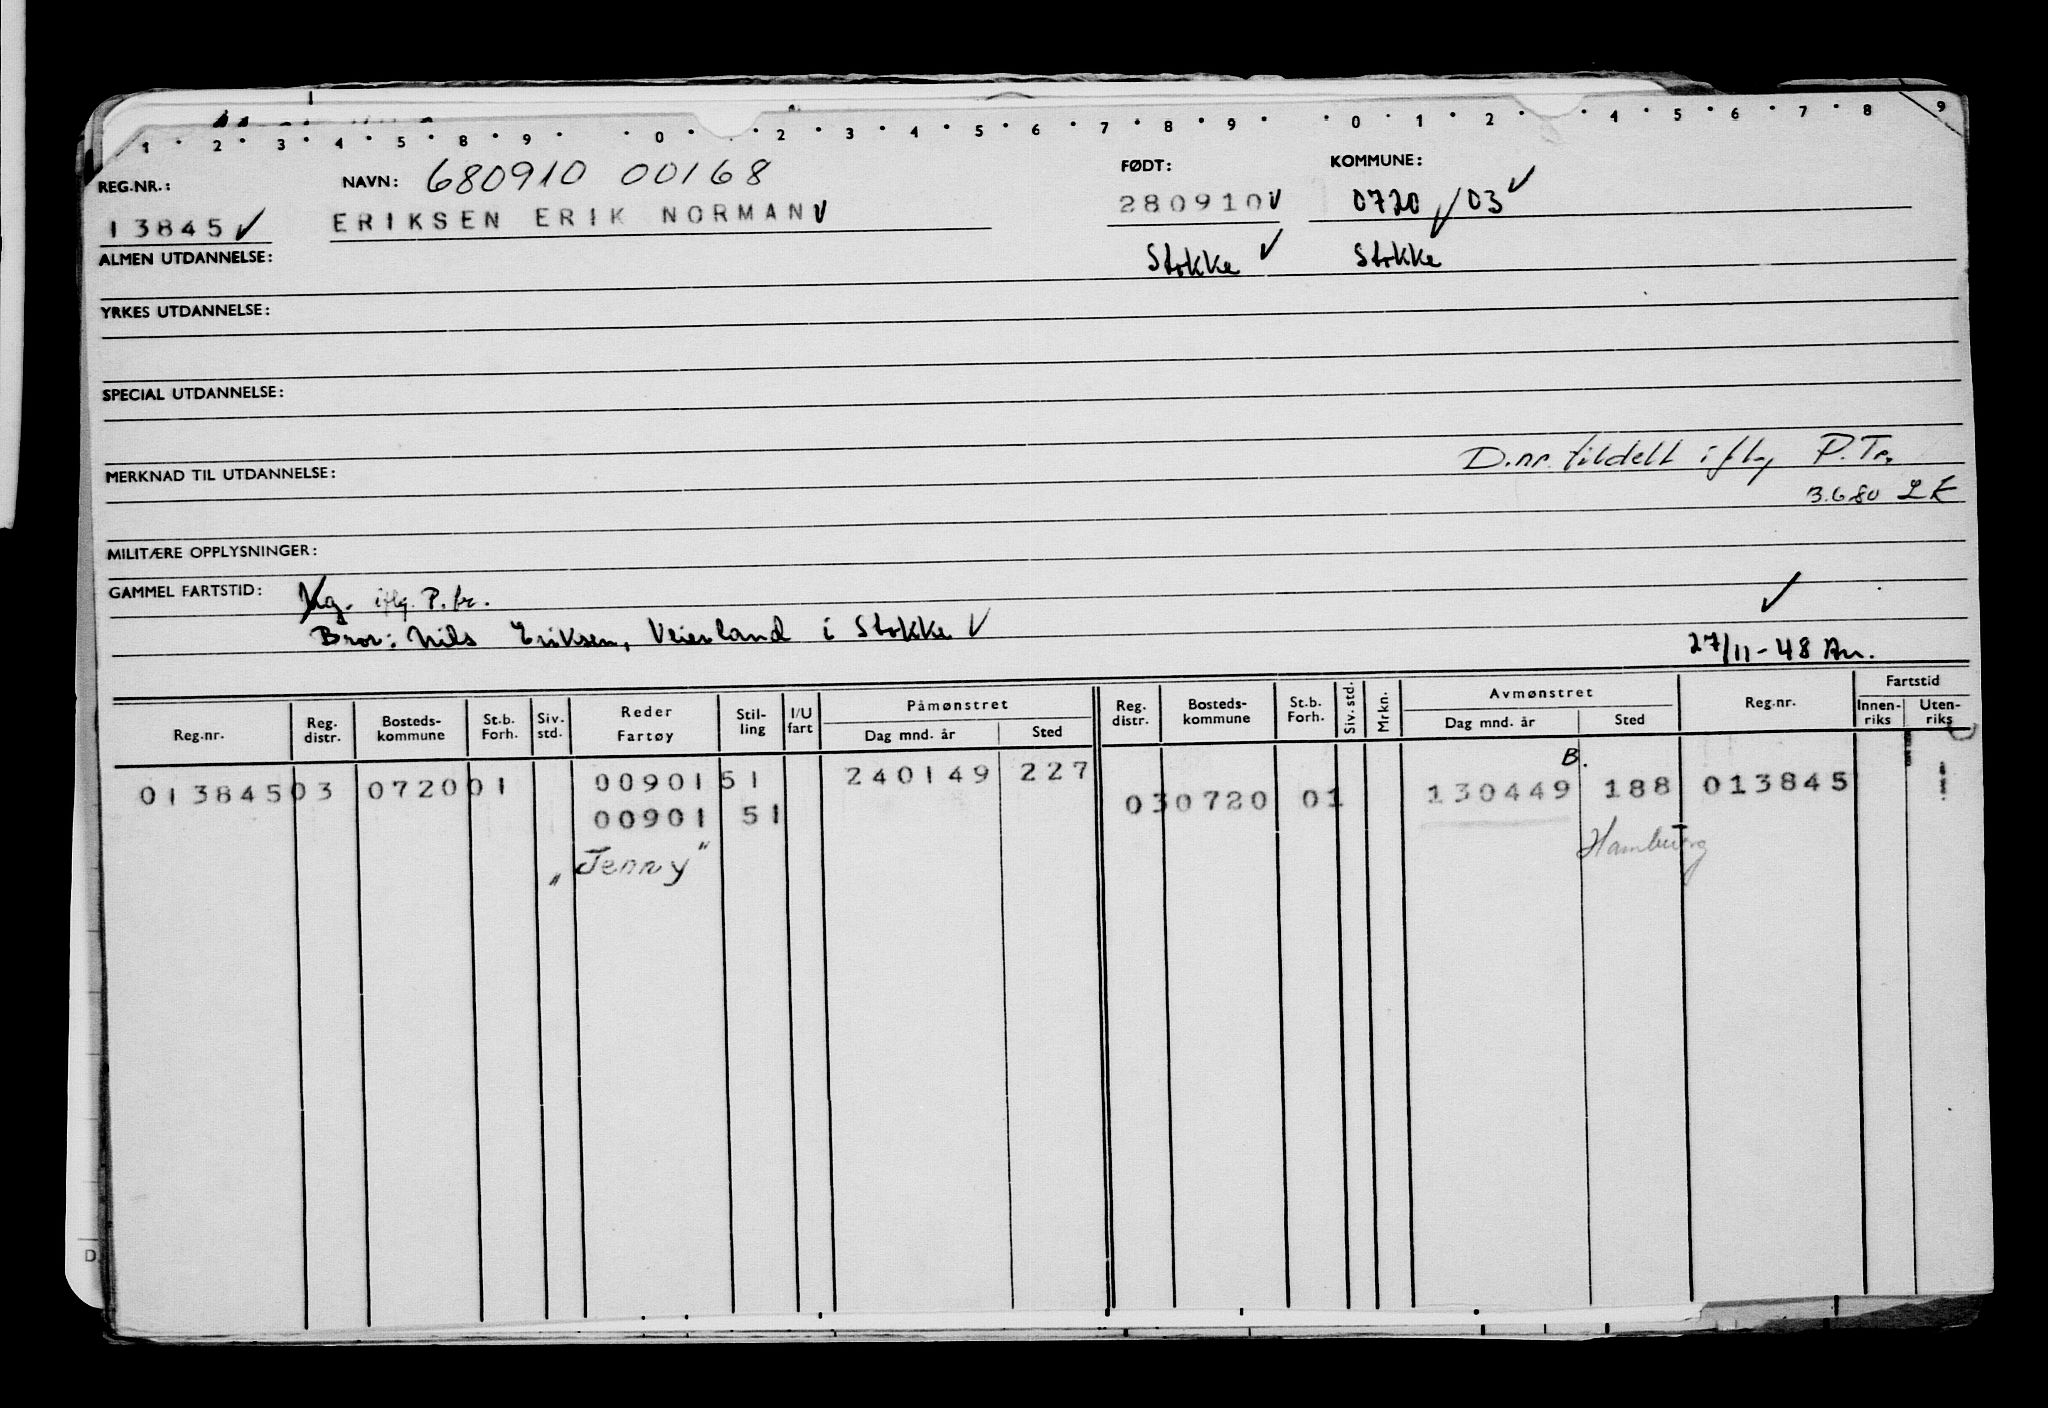 1 2 3 4 5 8 9 0 2 3 4 5 6 7 8 9 0 1 2 4 5 6 7 8 9
REG.NR.: NAVN: 680910 00168 FØDT: KOMMUNE:
13845 ✓ ERIKSEN ERIK NORMAN ✓ 280910 ✓ 0720 ✓ /03 ✓
ALMEN UTDANNELSE: Stokke ✓ Stokke
YRKES UTDANNELSE:
SPECIAL UTDANNELSE:
MERKNAD TIL UTDANNELSE: D.nr. tildelt iflg P.Tr.
3.6.80 LK
MILITÆRE OPPLYSNINGER:
GAMMEL FARTSTID: iflg. P. br. ✓
Bror: Nils Eriksen, Veierland i Stokke ✓
27/11-48 An.
Reg.nr. Reg. distr. Bosteds-kommune St.b. Forh. Siv. std. Reder Fartøy Stil-ling I/U fart Påmønstret Dag mnd. år Sted Reg. distr. Bosteds-kommune St.b. Forh. Siv. std. Mrkn. Avmønstret Dag mnd. år Sted Reg.nr. Fartstid Innen-riks Uten-riks
B.
013845 03 0720 01 00901 51 240149 227 03 0720 01 130449 188 013845
00901 51 Hamburg
"Jenny"
D.